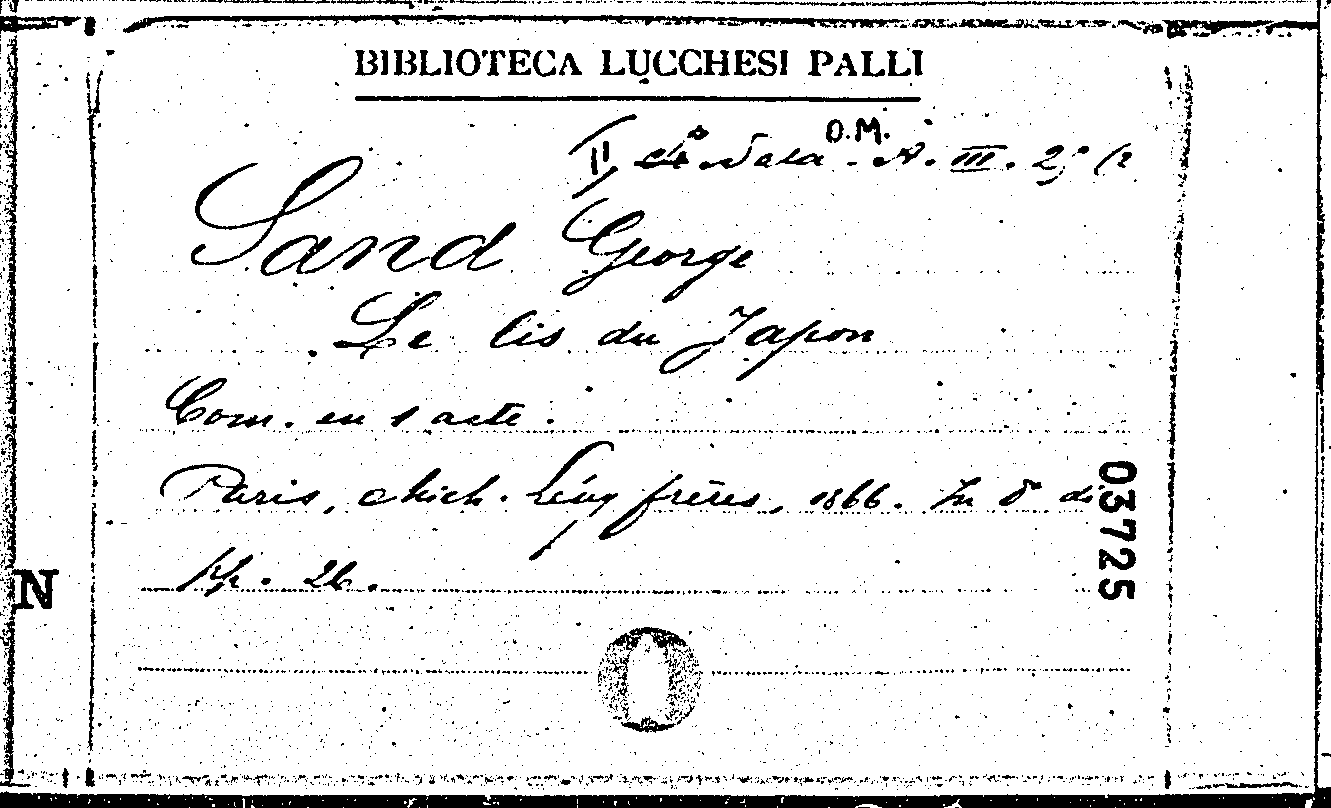 BIBLIOTECA LUCCHESI PALLI
O.M.
II Sala - A. III. 25 (2
Sand George
Le lis du Japon
Com. en 1 acte.
Paris, Mich. Lévy frères, 1866. In 8° di
pp. 26.
03725
N